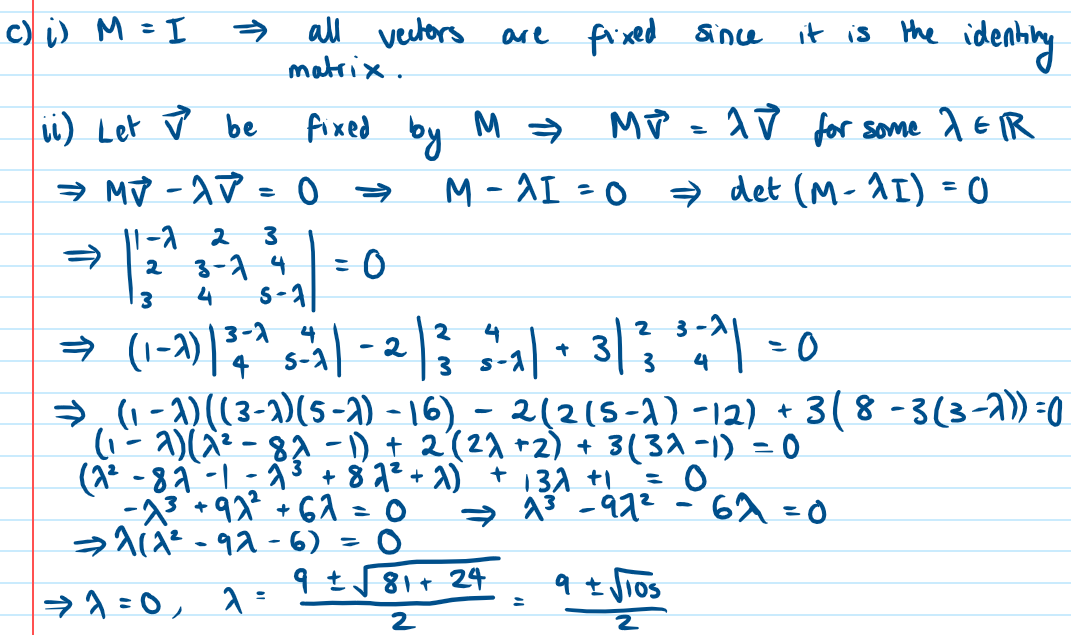 c) i) M = I ⇒ all vectors are fixed since it is the identity
matrix.
ii) Let v⃗ be fixed by M ⇒ Mv⃗ = λv⃗ for some λ ∈ ℝ
⇒ Mv⃗ - λv⃗ = 0 ⇒ M - λI = 0 ⇒ det (M - λI) = 0
⇒ |1-λ 2 3|
|2 3-λ 4| = 0
|3 4 5-λ|
⇒ (1-λ) |3-λ 4; 4 5-λ| - 2 |2 4; 3 5-λ| + 3 |2 3-λ; 3 4| = 0
⇒ (1-λ)((3-λ)(5-λ) - 16) - 2(2(5-λ) - 12) + 3(8 - 3(3-λ)) = 0
(1 - λ)(λ² - 8λ - 1) + 2(2λ + 2) + 3(3λ - 1) = 0
(λ² - 8λ - 1 - λ³ + 8λ² + λ) + 13λ + 1 = 0
-λ³ + 9λ² + 6λ = 0 ⇒ λ³ - 9λ² - 6λ = 0
⇒ λ(λ² - 9λ - 6) = 0
⇒ λ = 0, λ = (9 ± √(81 + 24))/2 = (9 ± √105)/2